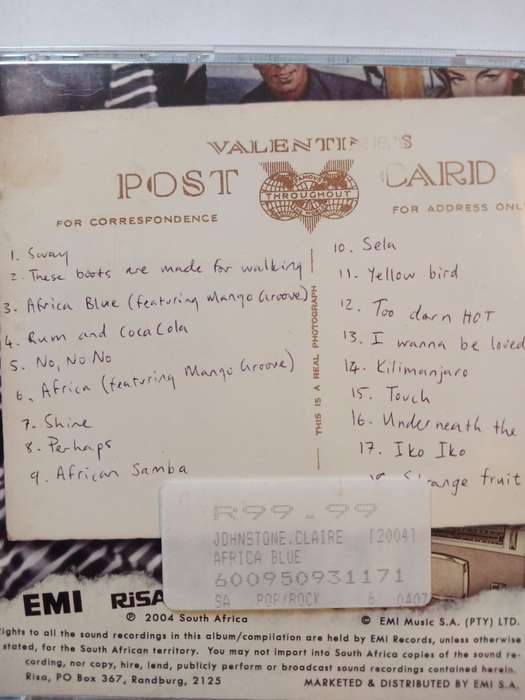 VALENTINE'S
POST CARD
FAMOUS
THROUGHOUT
THE WORLD
FOR CORRESPONDENCE
FOR ADDRESS ONL
THIS IS A REAL PHOTOGRAPH
1. Sway
2. These boots are made for walking
3. Africa Blue (featuring Mango Groove)
4. Rum and CocaCola
5. No, No No
6. Africa (featuring Mango Groove)
7. Shine
8. Perhaps
9. African Samba
10. Sela
11. Yellow bird
12. Too darn HOT
13. I wanna be loved
14. Kilimanjaro
15. Touch
16. Underneath the
17. Iko Iko
18. Strange fruit
R99.99
JOHNSTONE.CLAIRE [2004]
AFRICA BLUE
600950931171
SA POP/ROCK 6 0407
EMI RiSA
℗ 2004 South Africa
© EMI Music S.A. (PTY) LTD.
ights to all the sound recordings in this album/compilation are held by EMI Records, unless otherwise
stated, for the South African territory. You may not import into South Africa copies of the sound re-
cording, nor copy, hire, lend, publicly perform or broadcast sound recordings contained herein.
Risa, PO Box 367, Randburg, 2125
MARKETED & DISTRIBUTED BY EMI S.A.